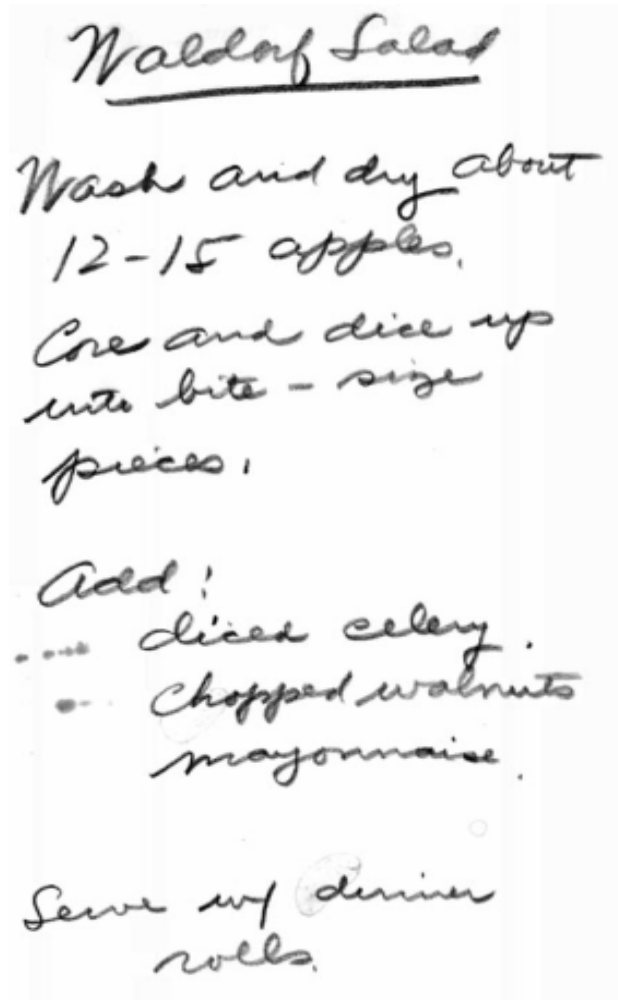 Waldorf Salad
Wash and dry about
12-15 apples.
Core and dice up
into bite - size
pieces.
Add:
diced celery.
chopped walnuts
mayonnaise.
Serve w/ dinner
rolls.